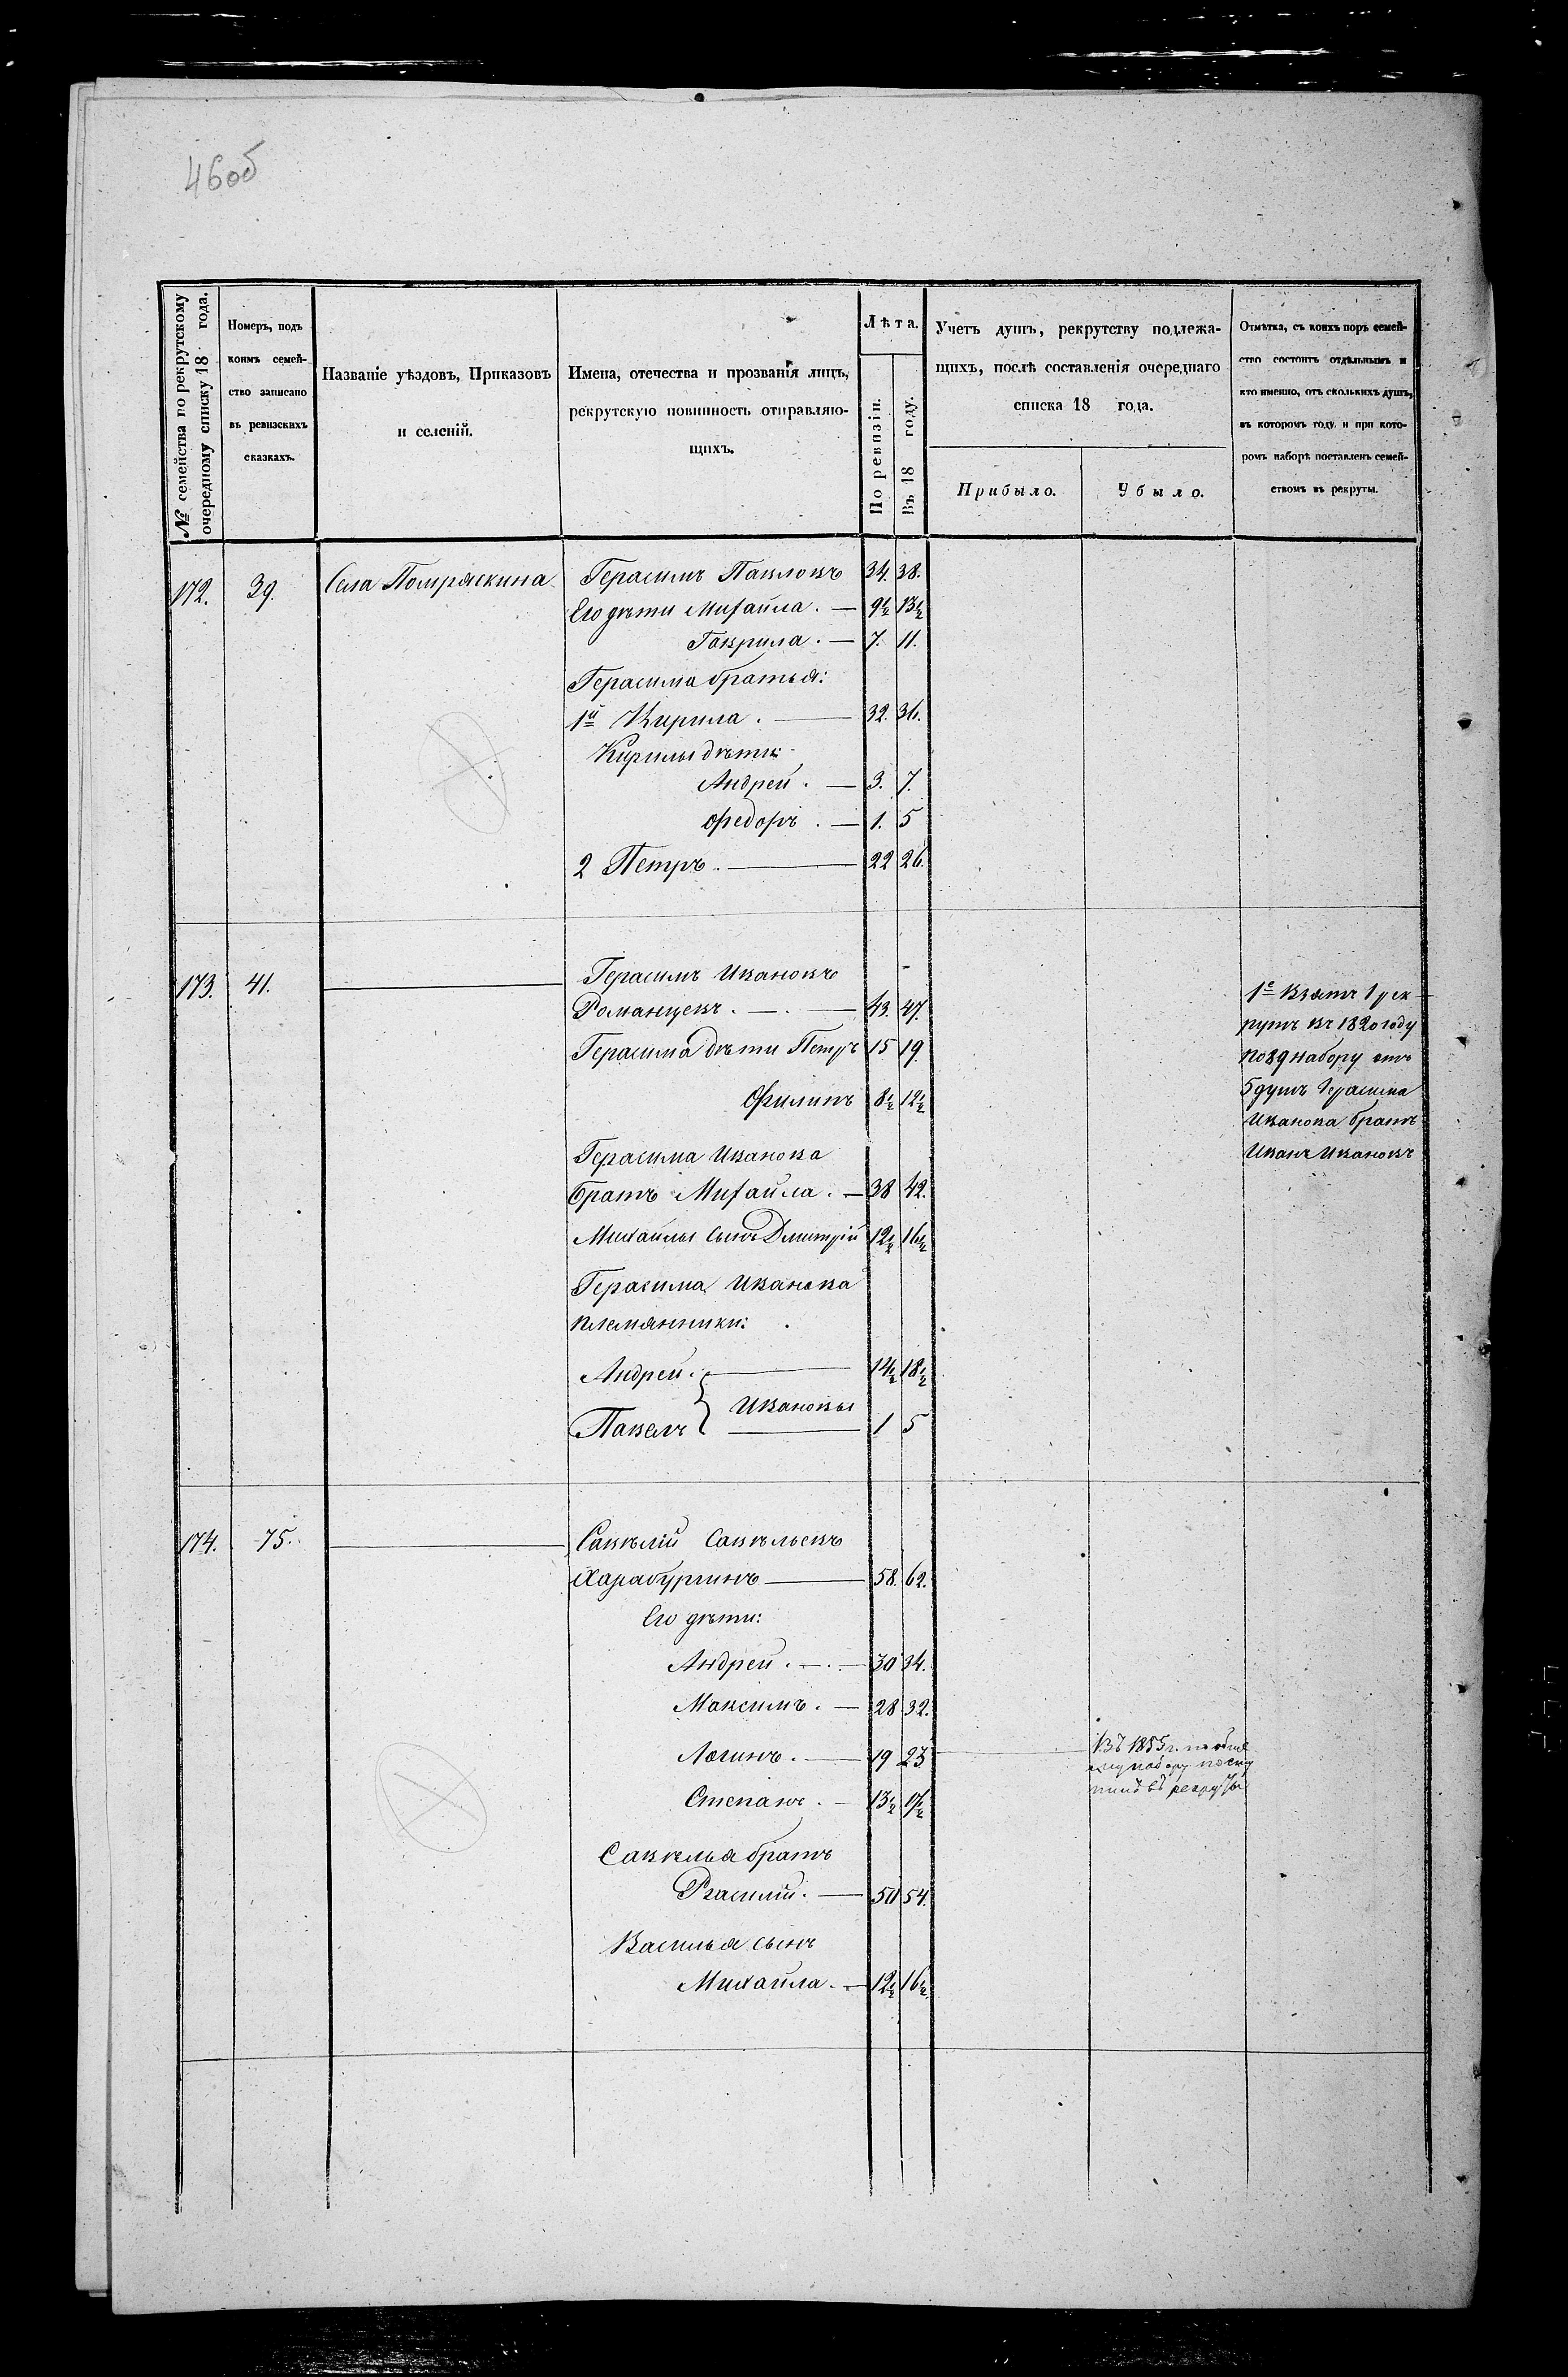 46 об
№ семейства по рекрутскому очередному списку 18 года.
Номеръ, подъ коимъ семейство записано въ ревизскихъ сказкахъ.
Названіе уѣздовъ, Приказовъ и селеній.
Имена, отечества и прозванія лицъ, рекрутскую повинность отправляющихъ.
Лѣта.
По ревизіи.
Въ 18 году.
Учетъ душъ, рекрутству подлежащихъ, послѣ составленія очереднаго списка 18 года.
Прибыло.
Убыло.
Отмѣтка, съ коихъ поръ семейство состоитъ отдѣльнымъ и кто именно, отъ сколькихъ душъ, въ которомъ году и при которомъ наборѣ поставленъ семействомъ въ рекруты.
172. 39. Села Помряскина Герасимъ Павловъ 34. 38.
Его дѣти Михайла. — 9½ 13½
Гаврила. — 7. 11.
Герасима братья:
1й Кирила. — 32. 36.
Кирилы дѣти:
Андрей. — 3. 7.
Федоръ. — 1. 5
2 Петръ. — 22 26.
173. 41. — Герасимъ Ивановъ
Романцевъ. — 43. 47.
Герасима дѣти Петръ 15 19
Филипъ 8½ 12½
Герасима Иванова
братъ Михайла. — 38 42.
Михайлы сынъ Дмитрій 12½ 16½
Герасима Иванова
племянники:
Андрей. — 14½ 18½
Ивановы
Павелъ — 1 5
1е Взятъ 1 рек
рутъ въ 1820 году
по 89 набору отъ
5 душъ Герасима
Иванова братъ
Иванъ Ивановъ
174. 75. — Савѣлій Савѣльевъ
Харабургинъ — 58. 62.
Его дѣти:
Андрей. — 30 34.
Максимъ. — 28 32.
Логинъ. — 19 23
Въ 1855 г.
набору посту
пилъ въ рекруты
Степанъ. — 13½ 17½
Савѣлья братъ
Василій. — 50 54.
Василья сынъ
Михайла. — 12½ 16½